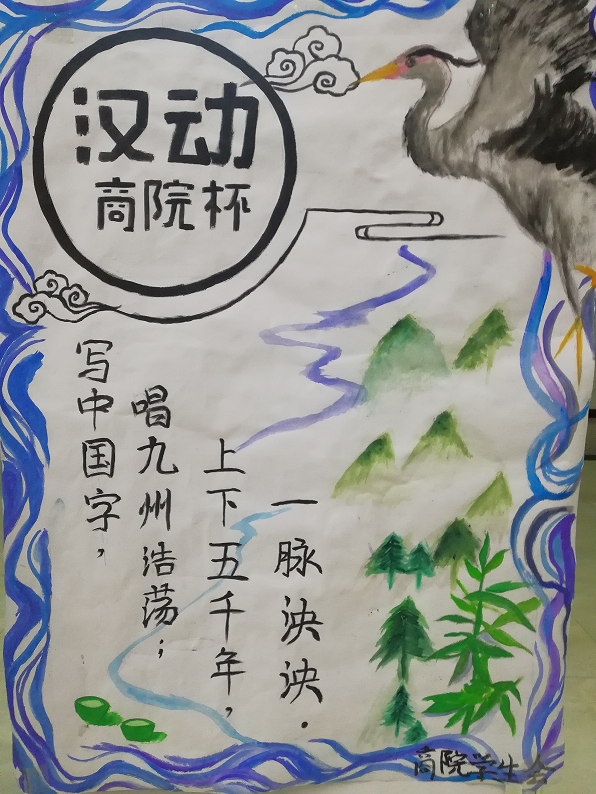 汉动
商院杯
写中国字，
唱九州浩荡；
上下五千年，
一脉泱泱.
商院学生会